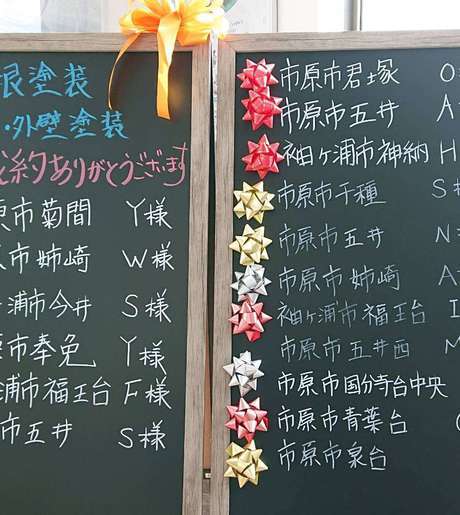 根塗装
・外壁塗装
約ありがとうございます
原市菊間 Y様
市姉崎 W様
ヶ浦市今井 S様
市奉免 Y様
浦市福王台 F様
市五井 S様
市原市君塚 O
市原市五井 A
袖ヶ浦市神納 H
市原市千種 S
市原市五井 N
市原市姉崎 A
袖ヶ浦市福王台 I
市原市五井西 M
市原市国分寺台中央
市原市青葉台
市原市泉台